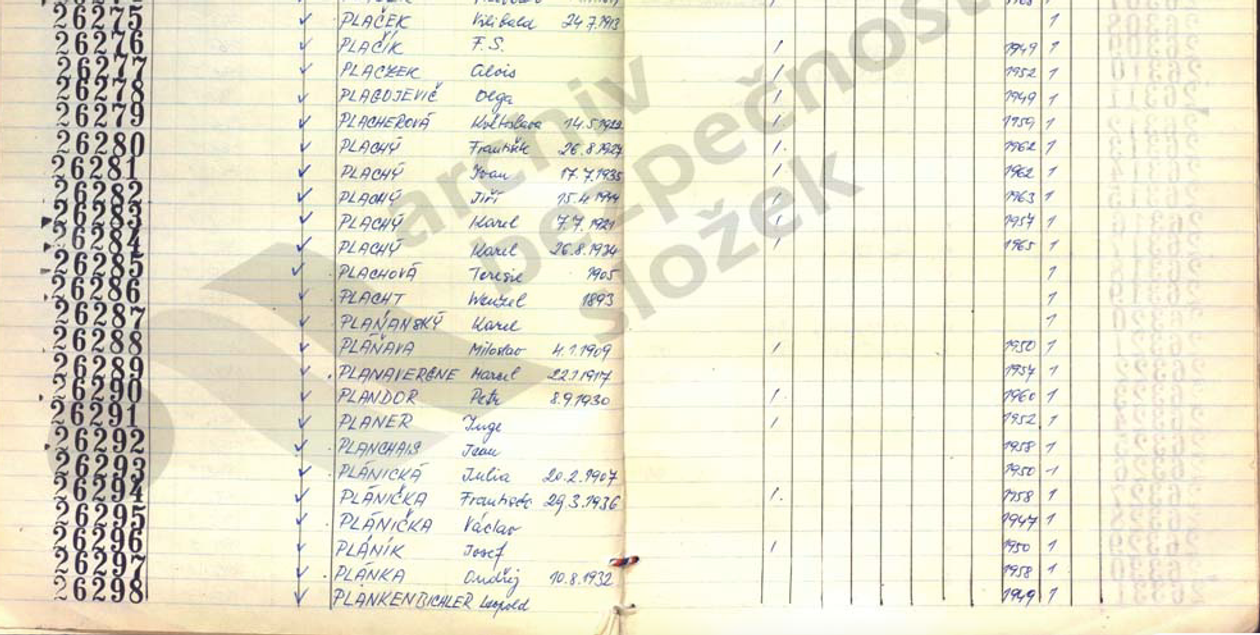 26275 ✓ PLAČEK Vilibald 24.7.1913 1
26276 ✓ PLAČÍK F.S. 1 1949 1
26277 ✓ PLACZEK Alois 1 1952 1
26278 ✓ PLAGOJEVIČ Olga 1 1949 1
26279 ✓ PLACHEROVÁ Květoslava 14.5.1922 1 1959 1
26280 ✓ PLACHÝ František 26.8.1927 1. 1962 1
26281 ✓ PLACHÝ Ivan 17.7.1935 1 1962 1
26282 ✓ PLACHÝ Jiří 15.4.1944 1 1963 1
26283 ✓ PLACHÝ Karel 7.7.1921 1 1957 1
26284 ✓ PLACHÝ Karel 26.8.1934 1 1965 1
26285 ✓ PLACHOVÁ Teresie 1905 1
26286 ✓ PLACHT Wenzel 1893 1
26287 ✓ PLAŇANSKÝ Karel 1
26288 ✓ PLÁŇAVA Miloslav 4.1.1909 1 1950 1
26289 ✓ PLANAVERGNE Marcel 22.1.1917 1957 1
26290 ✓ PLANDOR Petr 8.9.1930 1. 1960 1
26291 ✓ PLANER Inge 1 1952 1
26292 ✓ PLANCHAIS Jean 1958 1
26293 ✓ PLÁNICKÁ Julia 20.2.1907 1950 1
26294 ✓ PLÁNIČKA František 29.3.1936 1. 1958 1
26295 ✓ PLÁNIČKA Václav 1947 1
26296 ✓ PLÁNÍK Josef 1 1950 1
26297 ✓ PLÁNKA Ondřej 10.8.1932 1958 1
26298 ✓ PLANKENBICHLER Leopold 1949 1
archiv
bezpečnost
složek